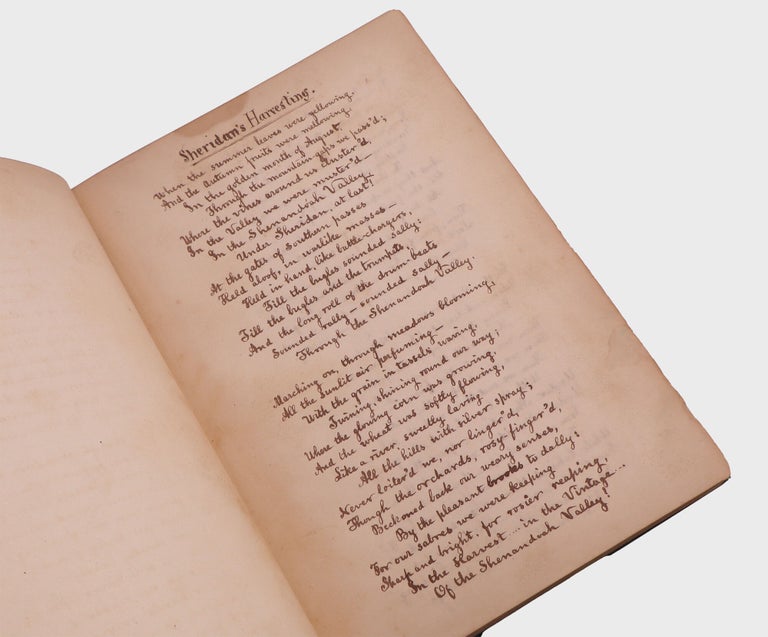 Sheridan's Harvesting.
When the summer leaves were yellowing.
And the autumn fruits were mellowing.
In the golden month of August,
Through the mountain gaps we pass'd;
Where the vines around us cluster'd,
In the Valley we were muster'd—
In the Shenandoah Valley—
Under Sheridan, at last!
At the gates of Southern passes
Held aloof, in warlike masses—
Held in hand, like battle-chargers,
Till the bugles sounded sally;
Till the bugles and the trumpets,
And the long roll of the drum-beats
Sounded rally—sounded sally—
Through the Shenandoah Valley.
Marching on, through meadows blooming,
All the sunlit air perfuming—
With the grain in tassels waving,
Twining, shining round our way;
Where the glowing corn was growing,
And the wheat was softly flowing,
Like a river, sweetly laving
All the hills with silver spray;
Never loiter'd we, nor linger'd,
Though the orchards, rosy-finger'd,
Beckoned back our weary senses,
By the pleasant brooks to dally:
For our sabres we were keeping
Sharp and bright, for rosier reaping,
In the Harvest.... in the Vintage...
Of the Shenandoah Valley!